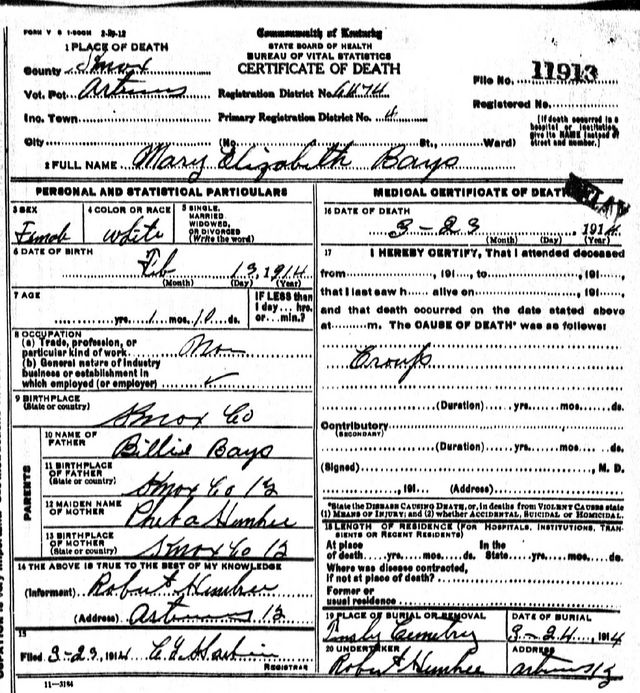 FORM V S 1-500M 2-20-12
Commonwealth of Kentucky
STATE BOARD OF HEALTH
BUREAU OF VITAL STATISTICS
CERTIFICATE OF DEATH
1 PLACE OF DEATH
County Knox
Vot. Pct. Artemus
Inc. Town
City (No. St., Ward)
Registration District No. 6474
Primary Registration District No. 4
File No. 11913
Registered No.
[If death occurred in a hospital or institution, give its NAME instead of street and number.]
2 FULL NAME Mary Elizabeth Bays
PERSONAL AND STATISTICAL PARTICULARS
3 SEX
Female
4 COLOR OR RACE
White
5 SINGLE, MARRIED, WIDOWED, OR DIVORCED (Write the word)
6 DATE OF BIRTH
Feb 13, 1914
(Month) (Day) (Year)
7 AGE
yrs. 1 mos. 10 ds.
IF LESS than 1 day... hrs. or... min.?
8 OCCUPATION
(a) Trade, profession, or particular kind of work
(b) General nature of industry business or establishment in which employed (or employer) ✓
9 BIRTHPLACE
(State or country) Knox Co
PARENTS
10 NAME OF FATHER Billie Bays
11 BIRTHPLACE OF FATHER
(State or country) Knox Co Ky
12 MAIDEN NAME OF MOTHER
13 BIRTHPLACE OF MOTHER
(State or country) Knox Co Ky
14 THE ABOVE IS TRUE TO THE BEST OF MY KNOWLEDGE
(Informant) Robert
(Address) Artemus Ky
15
Filed 3-23, 1914
REGISTRAR
11—3184
MEDICAL CERTIFICATE OF DEATH
16 DATE OF DEATH
3-23 1914
(Month) (Day) (Year)
17 I HEREBY CERTIFY, That I attended deceased
from, 191, to, 191,
that I last saw h alive on, 191,
and that death occurred on the date stated above
at m. The CAUSE OF DEATH* was as follows:
Croup
(Duration) yrs. mos. ds.
Contributory
(SECONDARY)
(Duration) yrs. mos. ds.
(Signed) M. D.
, 191 (Address)
*State the DISEASE CAUSING DEATH, or, in deaths from VIOLENT CAUSES state (1) MEANS OF INJURY; and (2) whether ACCIDENTAL, SUICIDAL or HOMICIDAL.
18 LENGTH OF RESIDENCE (FOR HOSPITALS, INSTITUTIONS, TRANSIENTS OR RECENT RESIDENTS)
At place of death yrs. mos. ds. In the State yrs. mos. ds.
Where was disease contracted, if not at place of death?
Former or usual residence
19 PLACE OF BURIAL OR REMOVAL
Cemetery
DATE OF BURIAL
3-24, 1914
20 UNDERTAKER
Robert
ADDRESS
Artemus Ky